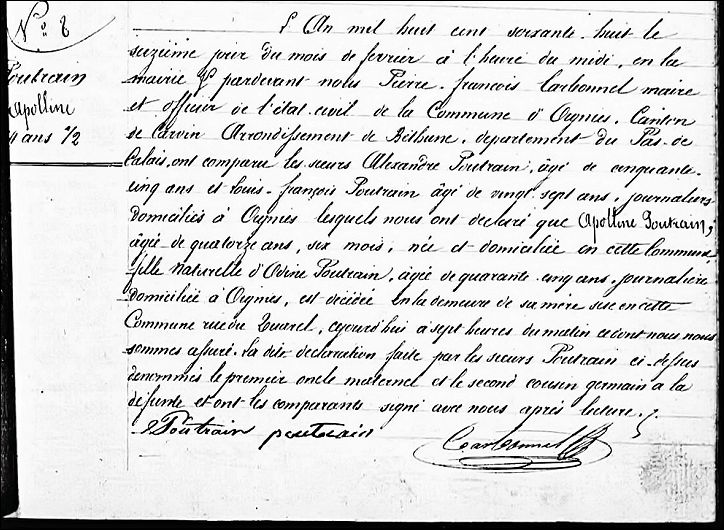 N° 8
Poutrain
Apolline
14 ans 1/2
L'An mil huit cent soixante huit le
seizième jour du mois de fevrier à l'heure du midi, en la
mairie & pardevant nous Pierre-françois Carbonnel maire
et officier de l'état-civil de la Commune d'Oignies, Canton
de Carvin Arrondissement de Béthune, departement du Pas-de
Calais, ont comparu les sieurs Alexandre Poutrain, âgé de cinquante-
cinq ans et Louis-françois Poutrain âgé de vingt sept ans, journaliers
domiciliés à Oignies lesquels nous ont declaré que Apolline Poutrain,
âgée de quatorze ans, six mois, née et domiciliée en cette Commune
fille Naturelle d'Odine Poutrain, âgée de quarante cinq ans, journalière
domiciliée à Oignies, est décédée en la demeure de sa mère sise en cette
Commune rue du , aujourd'hui à sept heures du matin ce dont nous nous
sommes assuré. La dite declaration faite par les sieurs Poutrain ci-dessus
denommés le premier oncle maternel et le second cousin germain a la
défunte et ont les comparants signé avec nous après lecture.
Poutrain poutrain Carbonnel